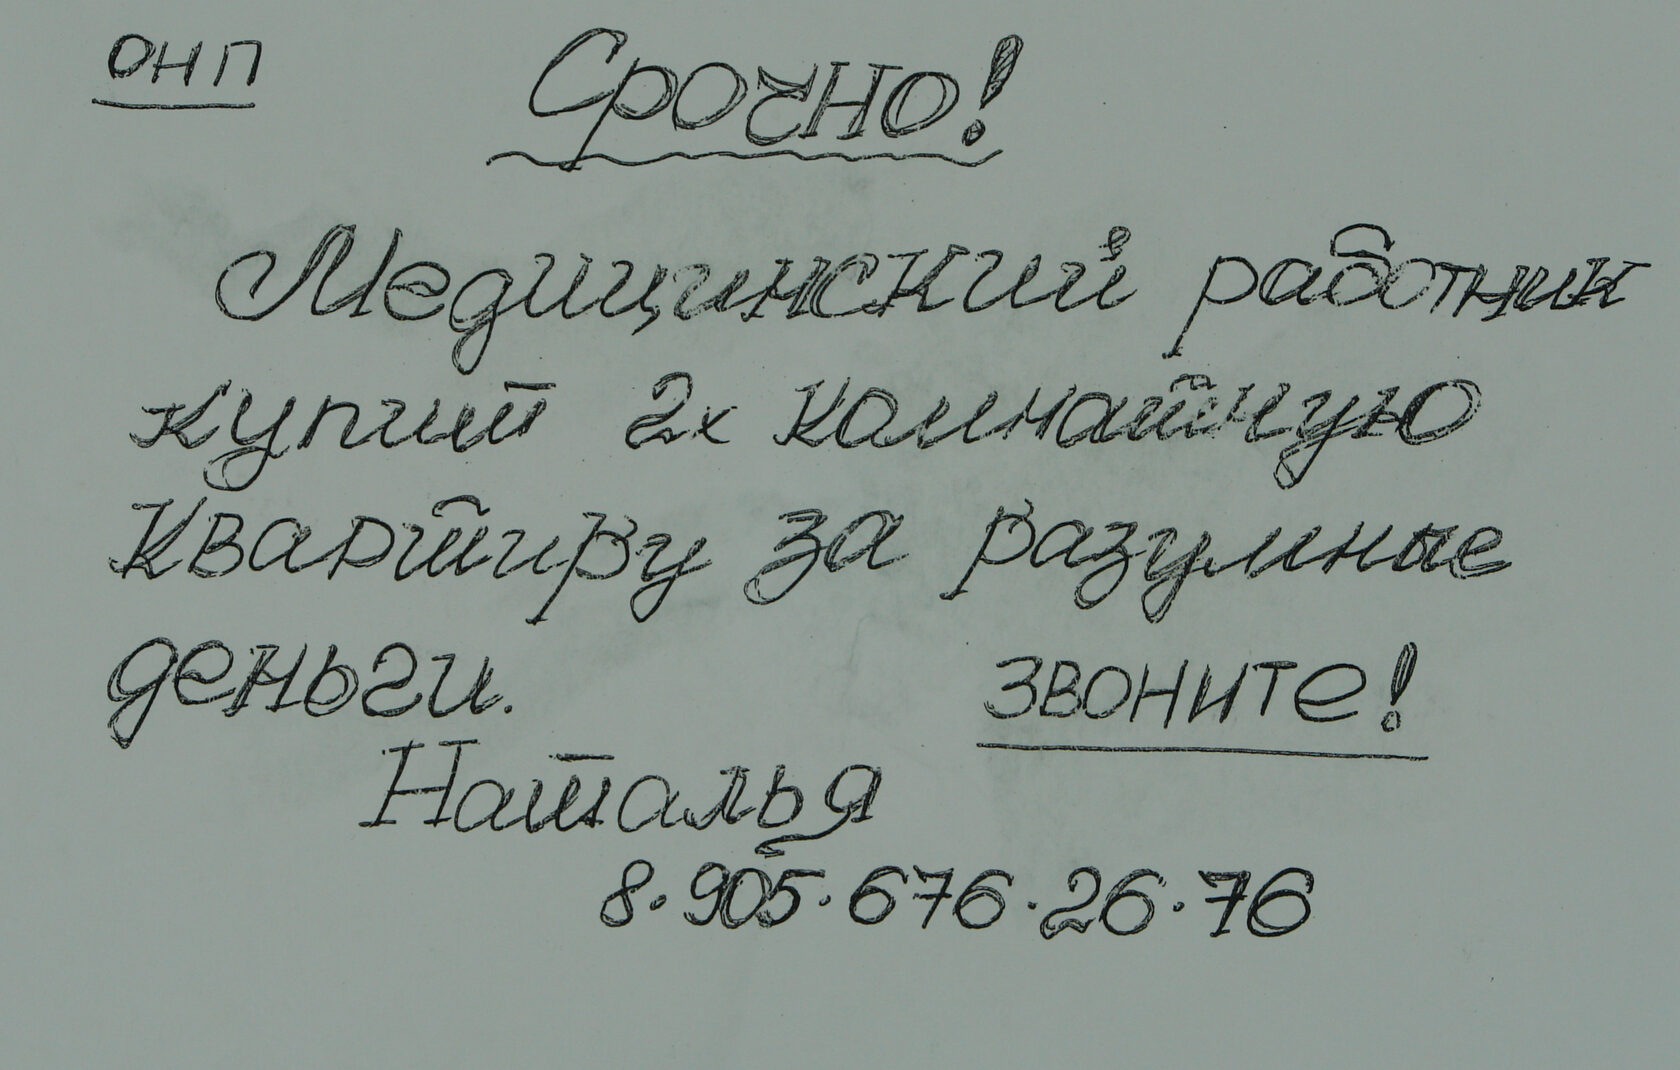 ОНП
Срочно!
Медицинский работник
купит 2х комнатную
квартиру за разумные
деньги. ЗВОНИТЕ!
Наталья
8.905.676.26.76